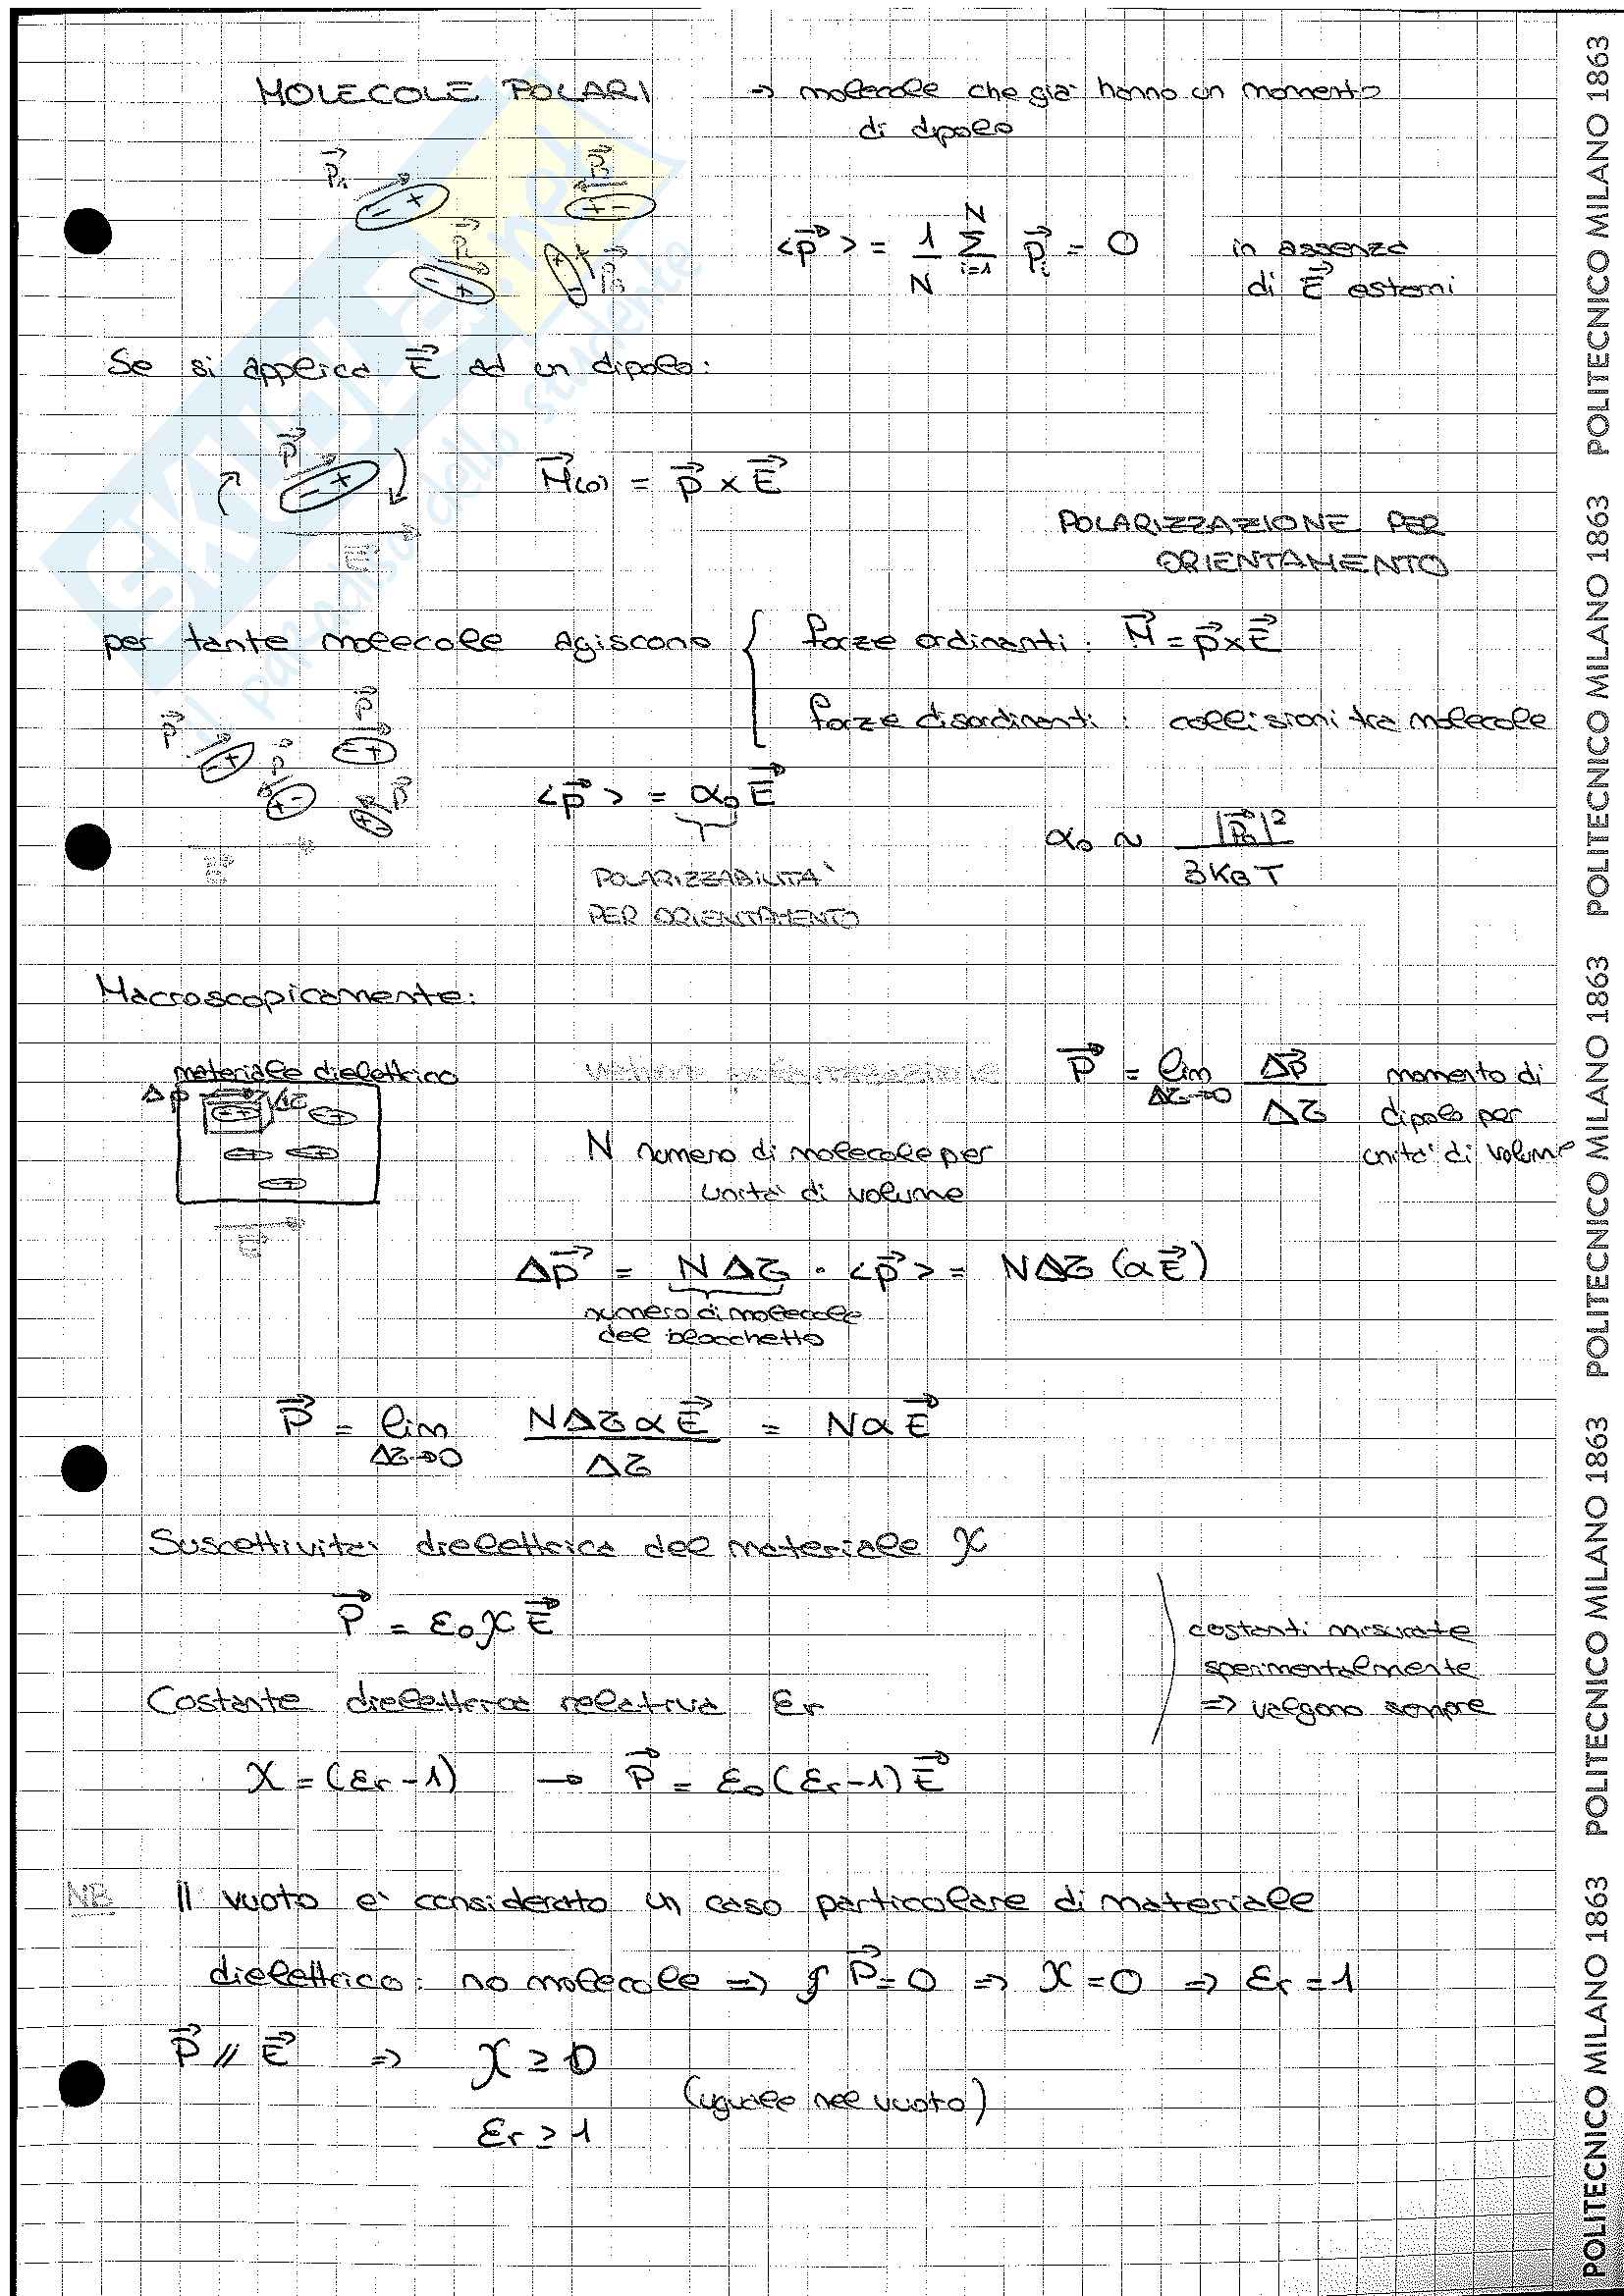 MOLECOLE POLARI => molecole che già hanno un momento
di dipolo
<p⃗> = 1/N Σ_{i=1}^{N} p⃗_i = 0 in assenza
di E⃗ esterni
Se si applica E⃗ ad un dipolo:
p⃗
- +
M⃗(o) = p⃗ × E⃗
E⃗
POLARIZZAZIONE PER
ORIENTAMENTO
per tante molecole agiscono { forze ordinanti: M⃗ = p⃗ × E⃗
forze disordinanti: collisioni tra molecole
<p⃗> = α₀ E⃗
α₀ ~ |p⃗₀|² / 3KBT
POLARIZZABILITA'
PER ORIENTAMENTO
Macroscopicamente:
materiale dielettrico
Δp⃗ Δτ
E⃗
vettore polarizzazione P⃗ = lim_{Δτ→0} Δp⃗/Δτ momento di
dipolo per
unità di volume
N numero di molecole per
unità di volume
Δp⃗ = NΔτ · <p⃗> = NΔτ (αE⃗)
numero di molecole
del blocchetto
P⃗ = lim_{Δτ→0} NΔταE⃗/Δτ = NαE⃗
Suscettività dielettrica del materiale χ
P⃗ = ε₀χE⃗
costanti misurate
sperimentalmente
=> valgono sempre
Costante dielettrica relativa εr
χ = (εr - 1) → P⃗ = ε₀(εr - 1)E⃗
NB Il vuoto è considerato un caso particolare di materiale
dielettrico: no molecole => P⃗ = 0 => χ = 0 => εr = 1
P⃗ // E⃗ => χ ≥ 0
(uguale nel vuoto)
εr ≥ 1
POLITECNICO MILANO 1863
POLITECNICO MILANO 1863
POLITECNICO MILANO 1863
POLITECNICO MILANO 1863
POLITECNICO MILANO 1863